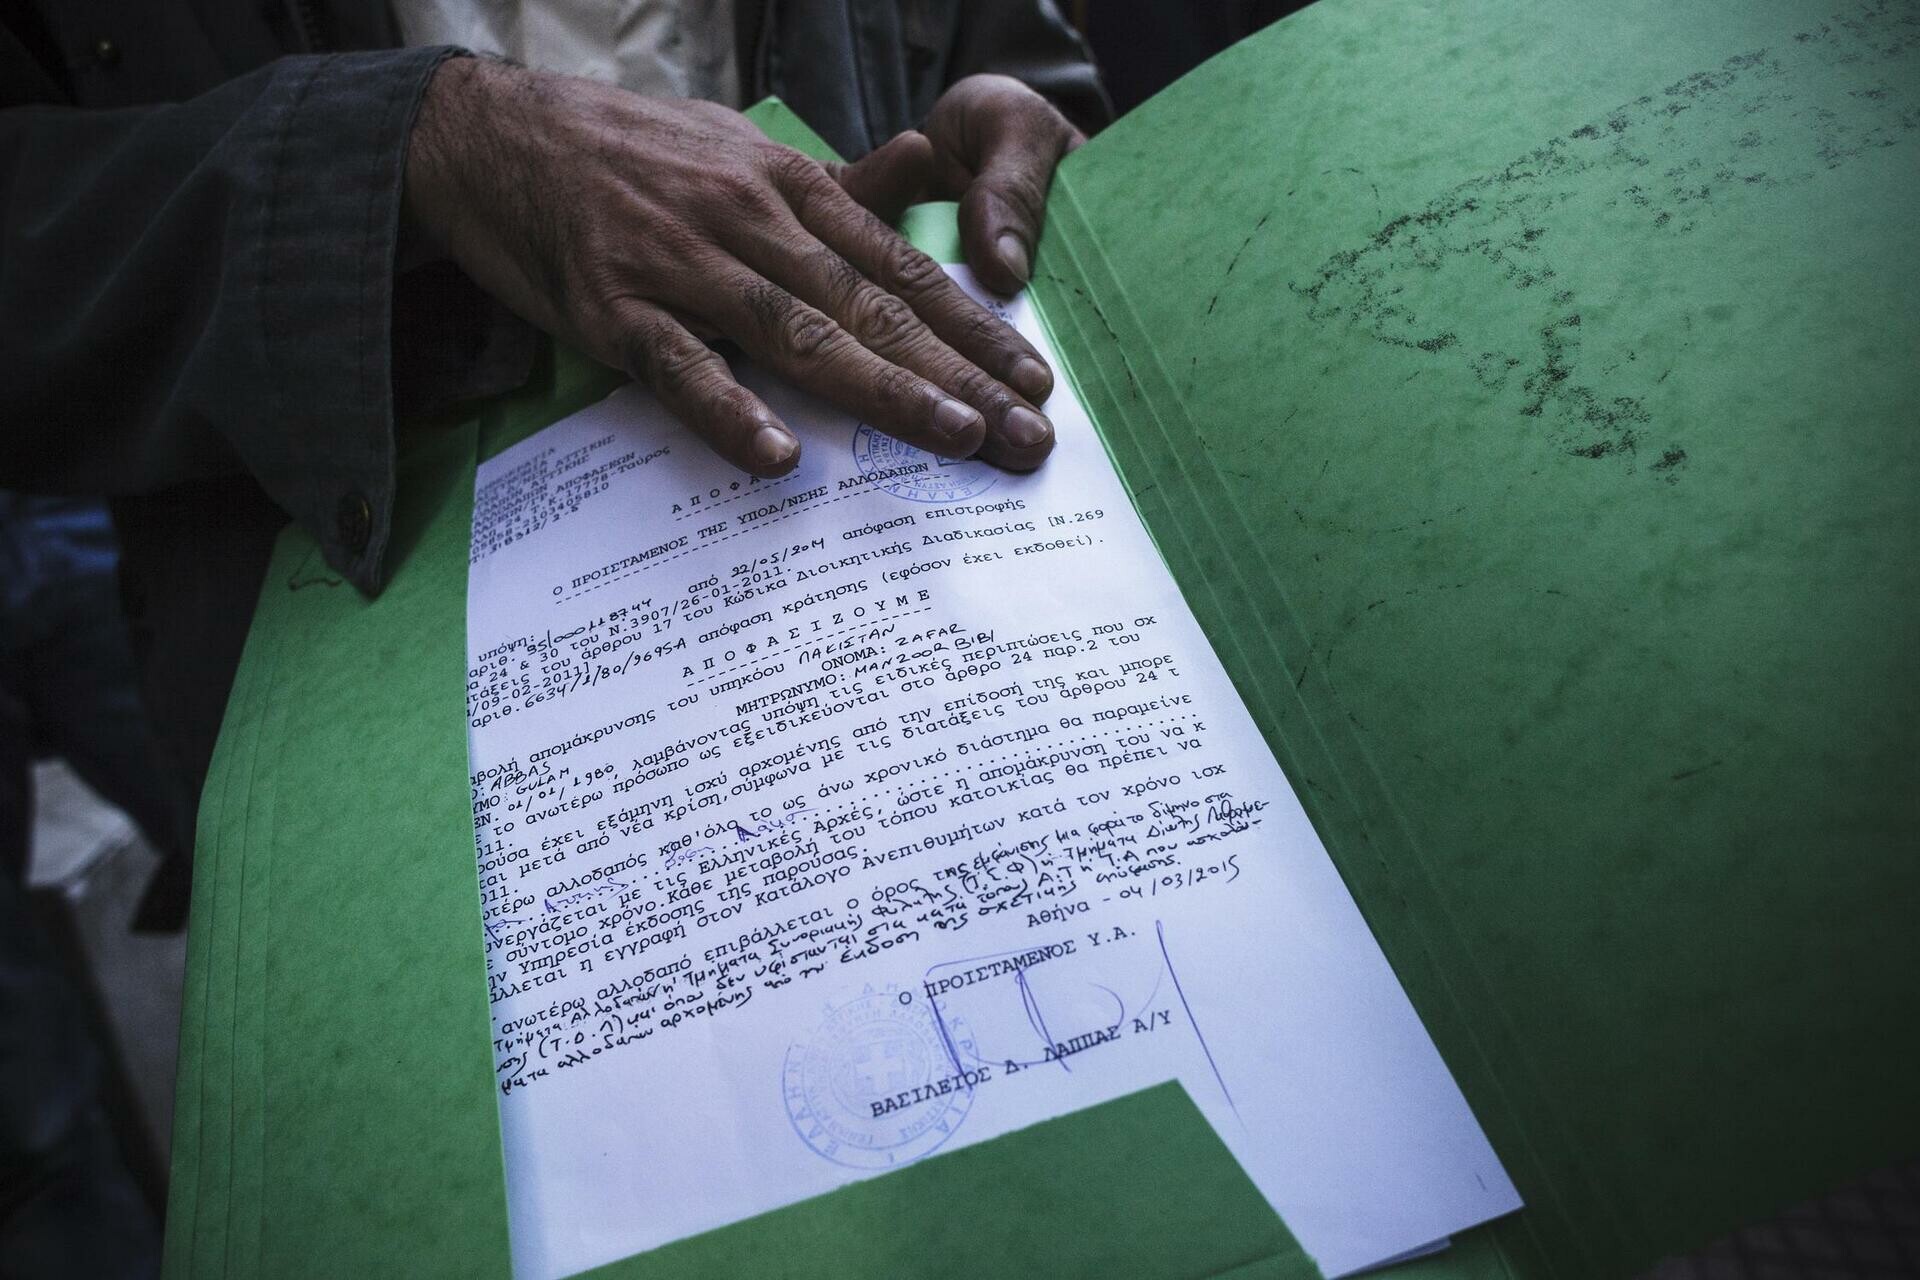 ΑΤΤΙΚΗΣ
Τ.Κ.17778-Ταύρος
-2103405810
24
Α Π Ο Φ Α
Ο ΠΡΟΙΣΤΑΜΕΝΟΣ ΤΗΣ ΥΠΟΔ/ΝΣΗΣ ΑΛΛΟΔΑΠΩΝ
υπόψη:
αριθ. 95/000118744 από 22/05/2014 απόφαση επιστροφής
24 & 30 του Ν.3907/26-01-2011.
τάξεις του άρθρου 17 του Κώδικα Διοικητικής Διαδικασίας [Ν.269
/09-02-2011]
αριθ. 6634/1/80/9695-Α απόφαση κράτησης (εφόσον έχει εκδοθεί).
Α Π Ο Φ Α Σ Ι Ζ Ο Υ Μ Ε
βολή απομάκρυνσης του υπηκόου ΠΑΚΙΣΤΑΝ
: ABBAS ΟΝΟΜΑ: ZAFAR
ΥΜΟ: GULAM ΜΗΤΡΩΝΥΜΟ: MANZOOR BIBI
ΕΝ. 01/01/1980, λαμβάνοντας υπόψη τις ειδικές περιπτώσεις που σχ
ε το ανωτέρω πρόσωπο ως εξειδικεύονται στο άρθρο 24 παρ.2 του
011.
ρούσα έχει εξάμηνη ισχύ αρχομένης από την επίδοσή της και μπορε
αι μετά από νέα κρίση, σύμφωνα με τις διατάξεις του άρθρου 24 τ
011.
ωτέρω αλλοδαπός καθ'όλο το ως άνω χρονικό διάστημα θα παραμείνε
υνεργάζεται με τις Ελληνικές Αρχές, ώστε η απομάκρυνση του να κ
ε σύντομο χρόνο. Κάθε μεταβολή του τόπου κατοικίας θα πρέπει να
ην Υπηρεσία έκδοσης της παρούσας.
άλλεται η εγγραφή στον κατάλογο Ανεπιθυμήτων κατά τον χρόνο ισχ
ανωτέρω αλλοδαπό επιβάλλεται ο όρος της εμφάνισης μια φορά το δίμηνο στα
Τμήματα Αλλοδαπών ή Τμήματα Συνοριακής Φύλαξης (Τ.Σ.Φ) ή Τμήματα Δίωξης Λαθρομε-
σης (Τ.Δ.Λ) και όπου δεν υφίστανται στα κατά τόπους Α.Τ ή Τ.Α που ασχολού-
ματα αλλοδαπών αρχομένης από την έκδοση της σχετικής απόφασης.
Αθήνα - 04/03/2015
Ο ΠΡΟΙΣΤΑΜΕΝΟΣ Υ.Α.
ΒΑΣΙΛΕΙΟΣ Δ. ΛΑΠΠΑΣ Α/Υ